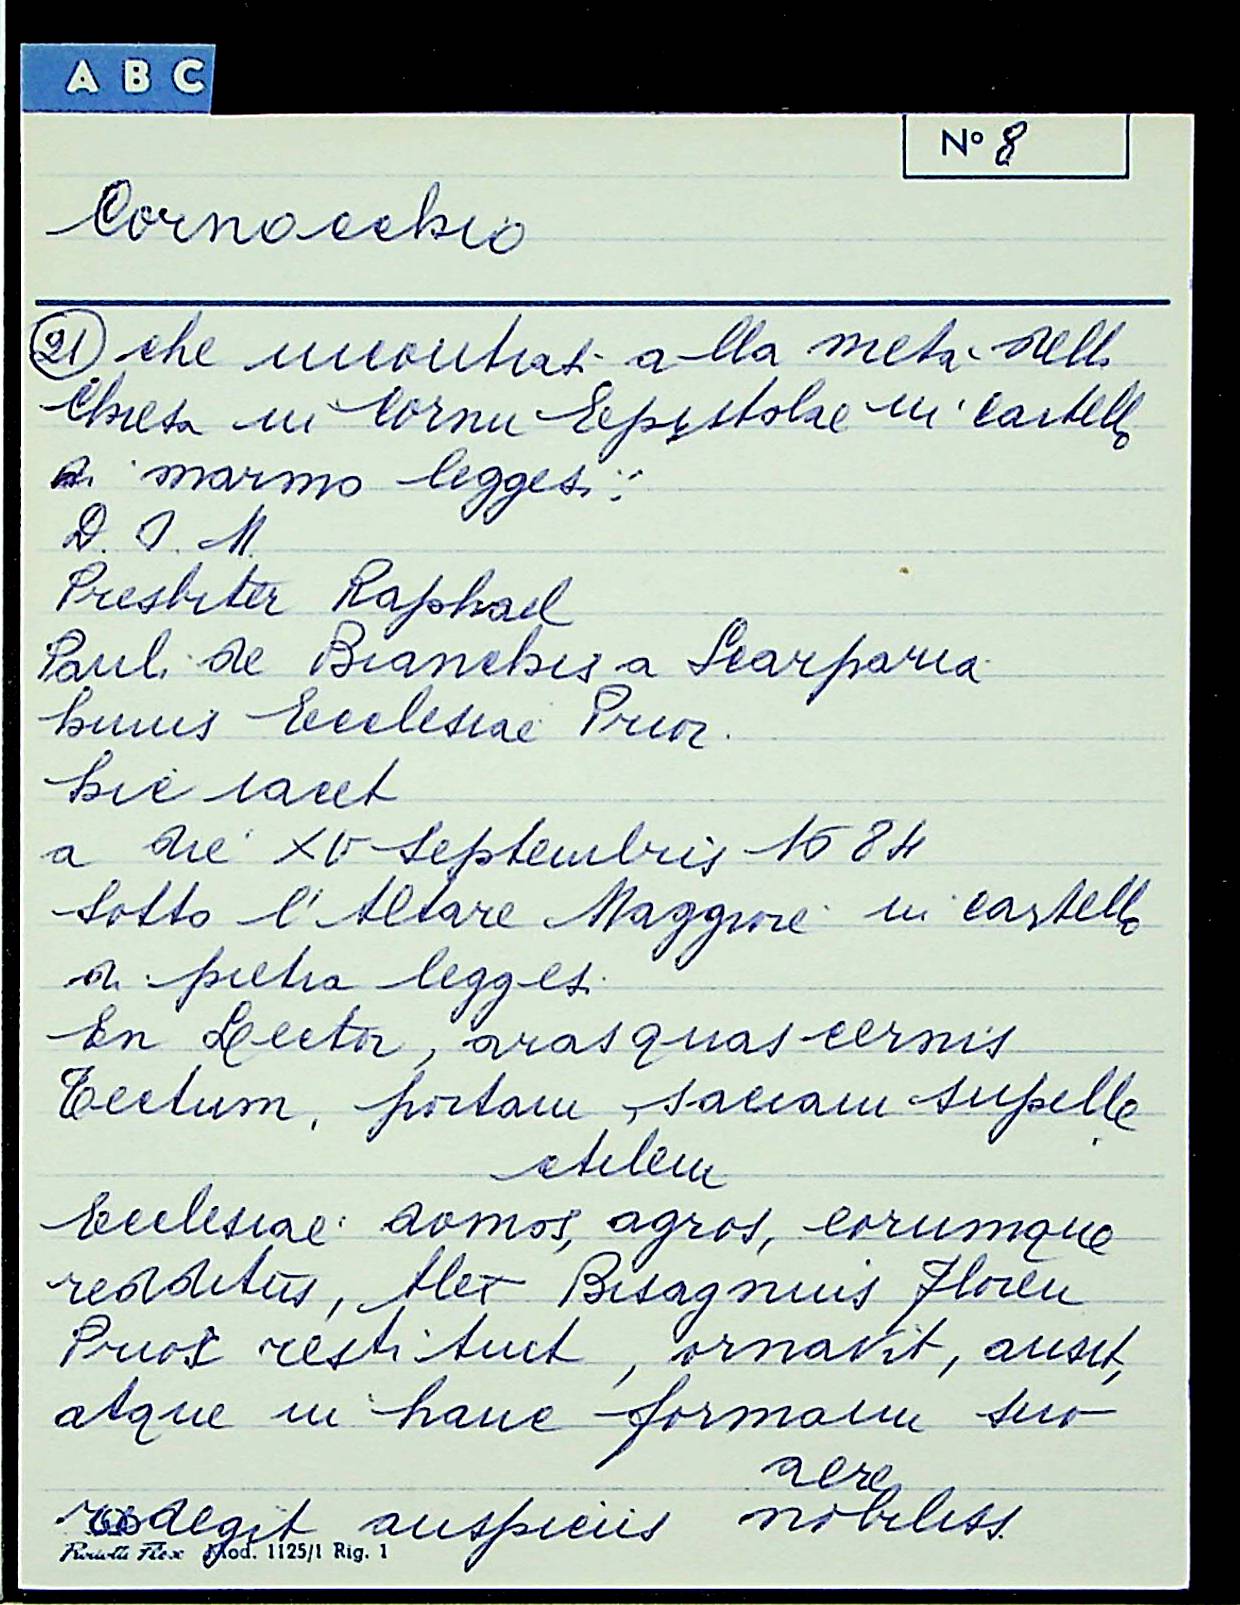 A B C
Nº 8
Cornocchio
21 che incontrasi alla metà della
Chiesa in Cornu Epystolae in cartello
di marmo leggesi:
D. O. M.
Presbiter Raphael
Pauli de Bianchis a Scarparia
huius Ecclesiae Prior.
hic iacet
a die XV Septembris 1584
Sotto l'Altare Maggiore in cartello
di pietra leggesi
En Lector, aras quas cernis
Tectum, portam, sacram supelle
ctilem
Ecclesiae domos, agros, eorumque
redditus, Alex Bisagnius Floren
Prior restituit, ornavit, auxit,
atque in hanc formam suo
aere
redegit auspiciis nobiliss.
Mod. 1125/1 Rig. 1